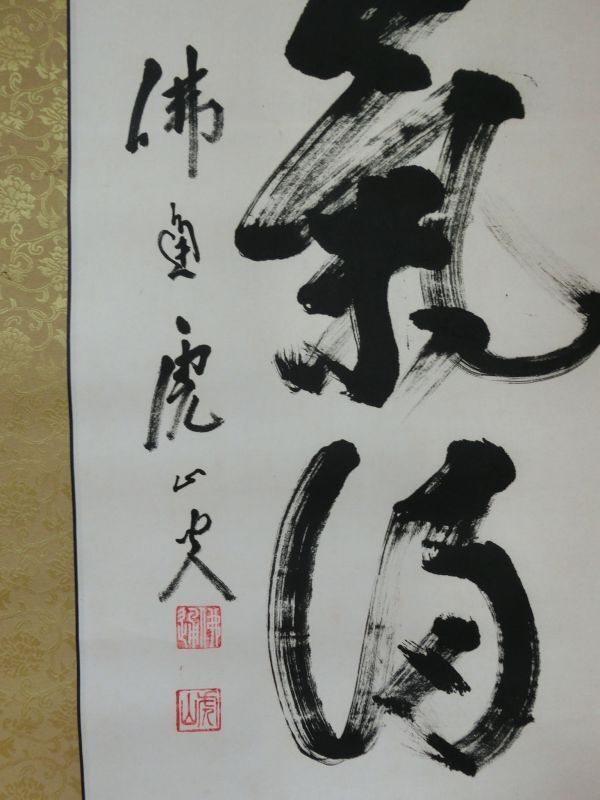 氣
佛通虎山叟
佛通
虎山